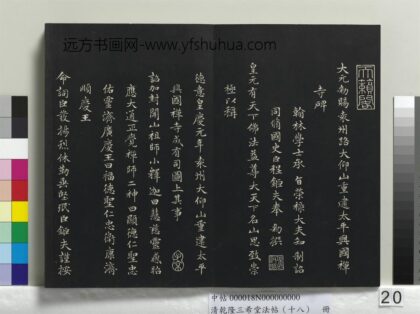 远方书画网-www.yfshuhua.com
大元勅賜袁州路大仰山重建太平興國禪
寺碑
翰林學士承旨榮祿大夫知制誥
同脩國史臣程鉅夫奉勅撰
皇元有天下佛法益尊天下名山思致崇
極以稱
德意皇慶元年袁州大仰山重建太平
興國禪寺成有司圖上其事
詔加封開山祖師小釋迦曰慧慈靈感昭
應大通正覺禪師二神曰顯德仁忠
佑靈濟廣慶王曰福德聖仁忠衛康濟
順慶王
命詞臣發揚烈休勒
臣鉅夫謹按
中帖 000018N000000000
清乾隆三希堂法帖(十八) 冊
20